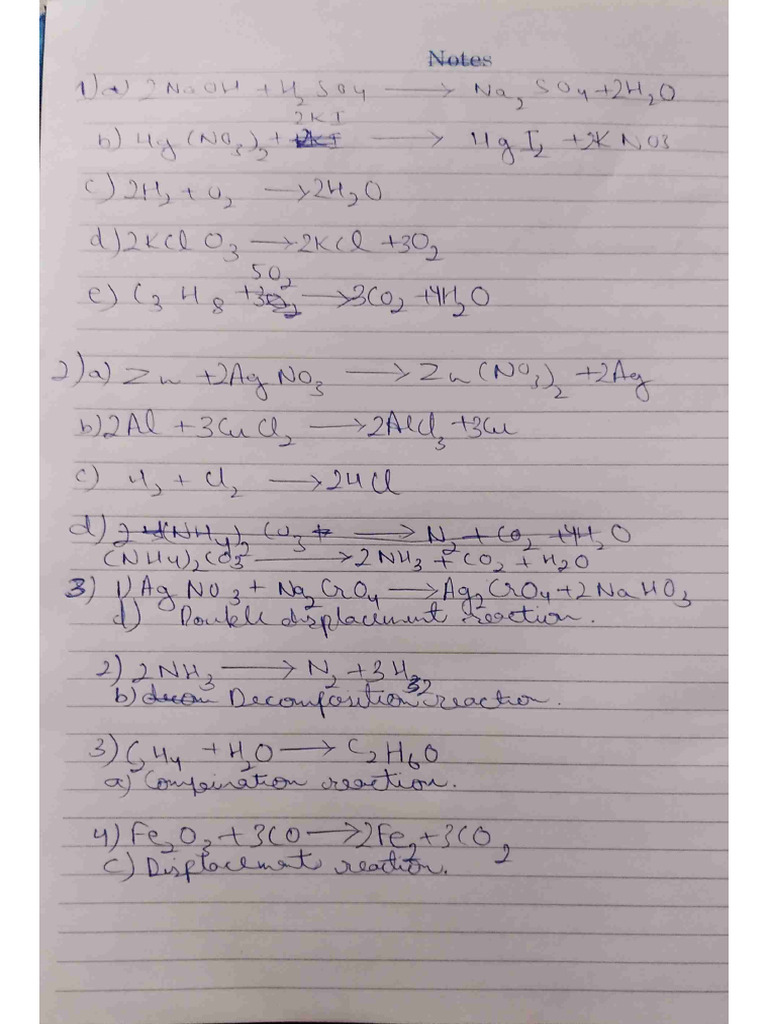 Notes
1) a) 2NaOH + H2SO4 ⟶ Na2SO4 + 2H2O
2KI
b) Hg(NO3)2 + ⟶ HgI2 + 2KNO3
c) 2H2 + O2 ⟶ 2H2O
d) 2KClO3 ⟶ 2KCl + 3O2
5O2
e) C3H8 + ⟶ 3CO2 + 4H2O
2) a) Zn + 2AgNO3 ⟶ Zn(NO3)2 + 2Ag
b) 2Al + 3CuCl2 ⟶ 2AlCl3 + 3Cu
c) H2 + Cl2 ⟶ 2HCl
d) 2 (NH4)2 CO3 + ⟶ N2 + CO2 + 4H2O
(NH4)2CO3 ⟶ 2NH3 + CO2 + H2O
3) 1) AgNO3 + Na2CrO4 ⟶ Ag2CrO4 + 2NaNO3
d) Double displacement reaction.
2) 2NH3 ⟶ N2 + 3H2
b) Decomposition reaction.
3) C2H4 + H2O ⟶ C2H6O
a) Combination reaction.
4) Fe2O3 + 3CO ⟶ 2Fe2 + 3CO2
c) Displacement reaction.